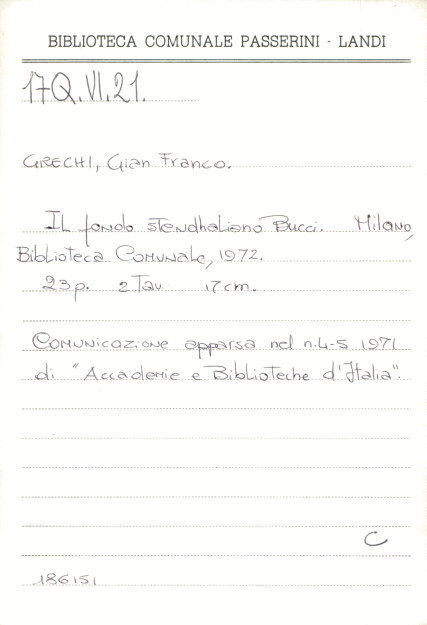 BIBLIOTECA COMUNALE PASSERINI - LANDI
17Q.VI.21.
GRECHI, Gian Franco.
Il fondo stendhaliano Bucci. Milano,
Biblioteca Comunale, 1972.
23p. 2 Tav. 17cm.
Comunicazione apparsa nel n.4-5 1971
di "Accademie e Biblioteche d'Italia".
C
186151